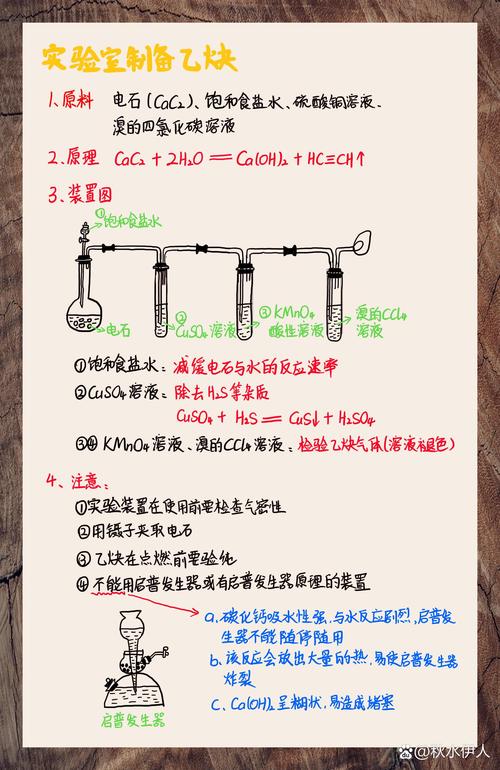 实验室制备乙炔
1、原料 电石(CaC2)、饱和食盐水、硫酸铜溶液、
溴的四氯化碳溶液
2、原理 CaC2 + 2H2O ══ Ca(OH)2 + HC≡CH↑
3、装置图
①饱和食盐水
电石
②
CuSO4溶液
③ KMnO4
酸性溶液
④
溴的CCl4
溶液
①饱和食盐水:减缓电石与水的反应速率
②CuSO4溶液:除去H2S等杂质
CuSO4 + H2S ══ CuS↓ + H2SO4
③④ KMnO4溶液、溴的CCl4溶液:检验乙炔气体(溶液褪色)
4、注意:
①实验装置在使用前要检查气密性
②用镊子夹取电石
③乙炔在点燃前要验纯
④不能用启普发生器或有启普发生器原理的装置
a.碳化钙吸水性强,与水反应剧烈,启普发
生器不能随停随用
b.该反应会放出大量的热,易使启普发生器
炸裂
c.Ca(OH)2呈糊状,易造成堵塞
启普发生器
Bai知道@秋水伊人